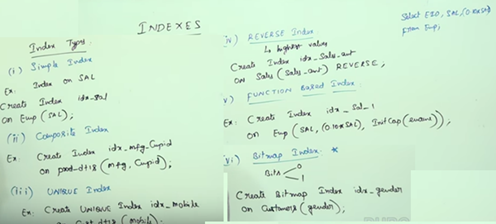 INDEXES
Index Types.
(i) Simple Index
Ex: Index on SAL
Create Index idx_sal
on Emp (SAL);
(ii) Composite Index
Ex: Create Index idx_mfg_Cupid
on prod_dtls (mfg, Cupid);
(iii) UNIQUE Index
Ex: Create UNIQUE Index idx_mobile
(mobile);
iv) REVERSE Index
↳ highest values
Create Index idx_Sales_amt
on Sales (Sales_amt) REVERSE;
v) FUNCTION Based Index
Ex: Create Index idx_Sal_1
on Emp (SAL, (0.10*SAL), InitCap(ename));
vi) Bitmap Index. *
Bits < 0
1
Create Bitmap Index idx_gender
on Customers (gender);
Select EID, SAL, (0.10*SAL)
From Emp;